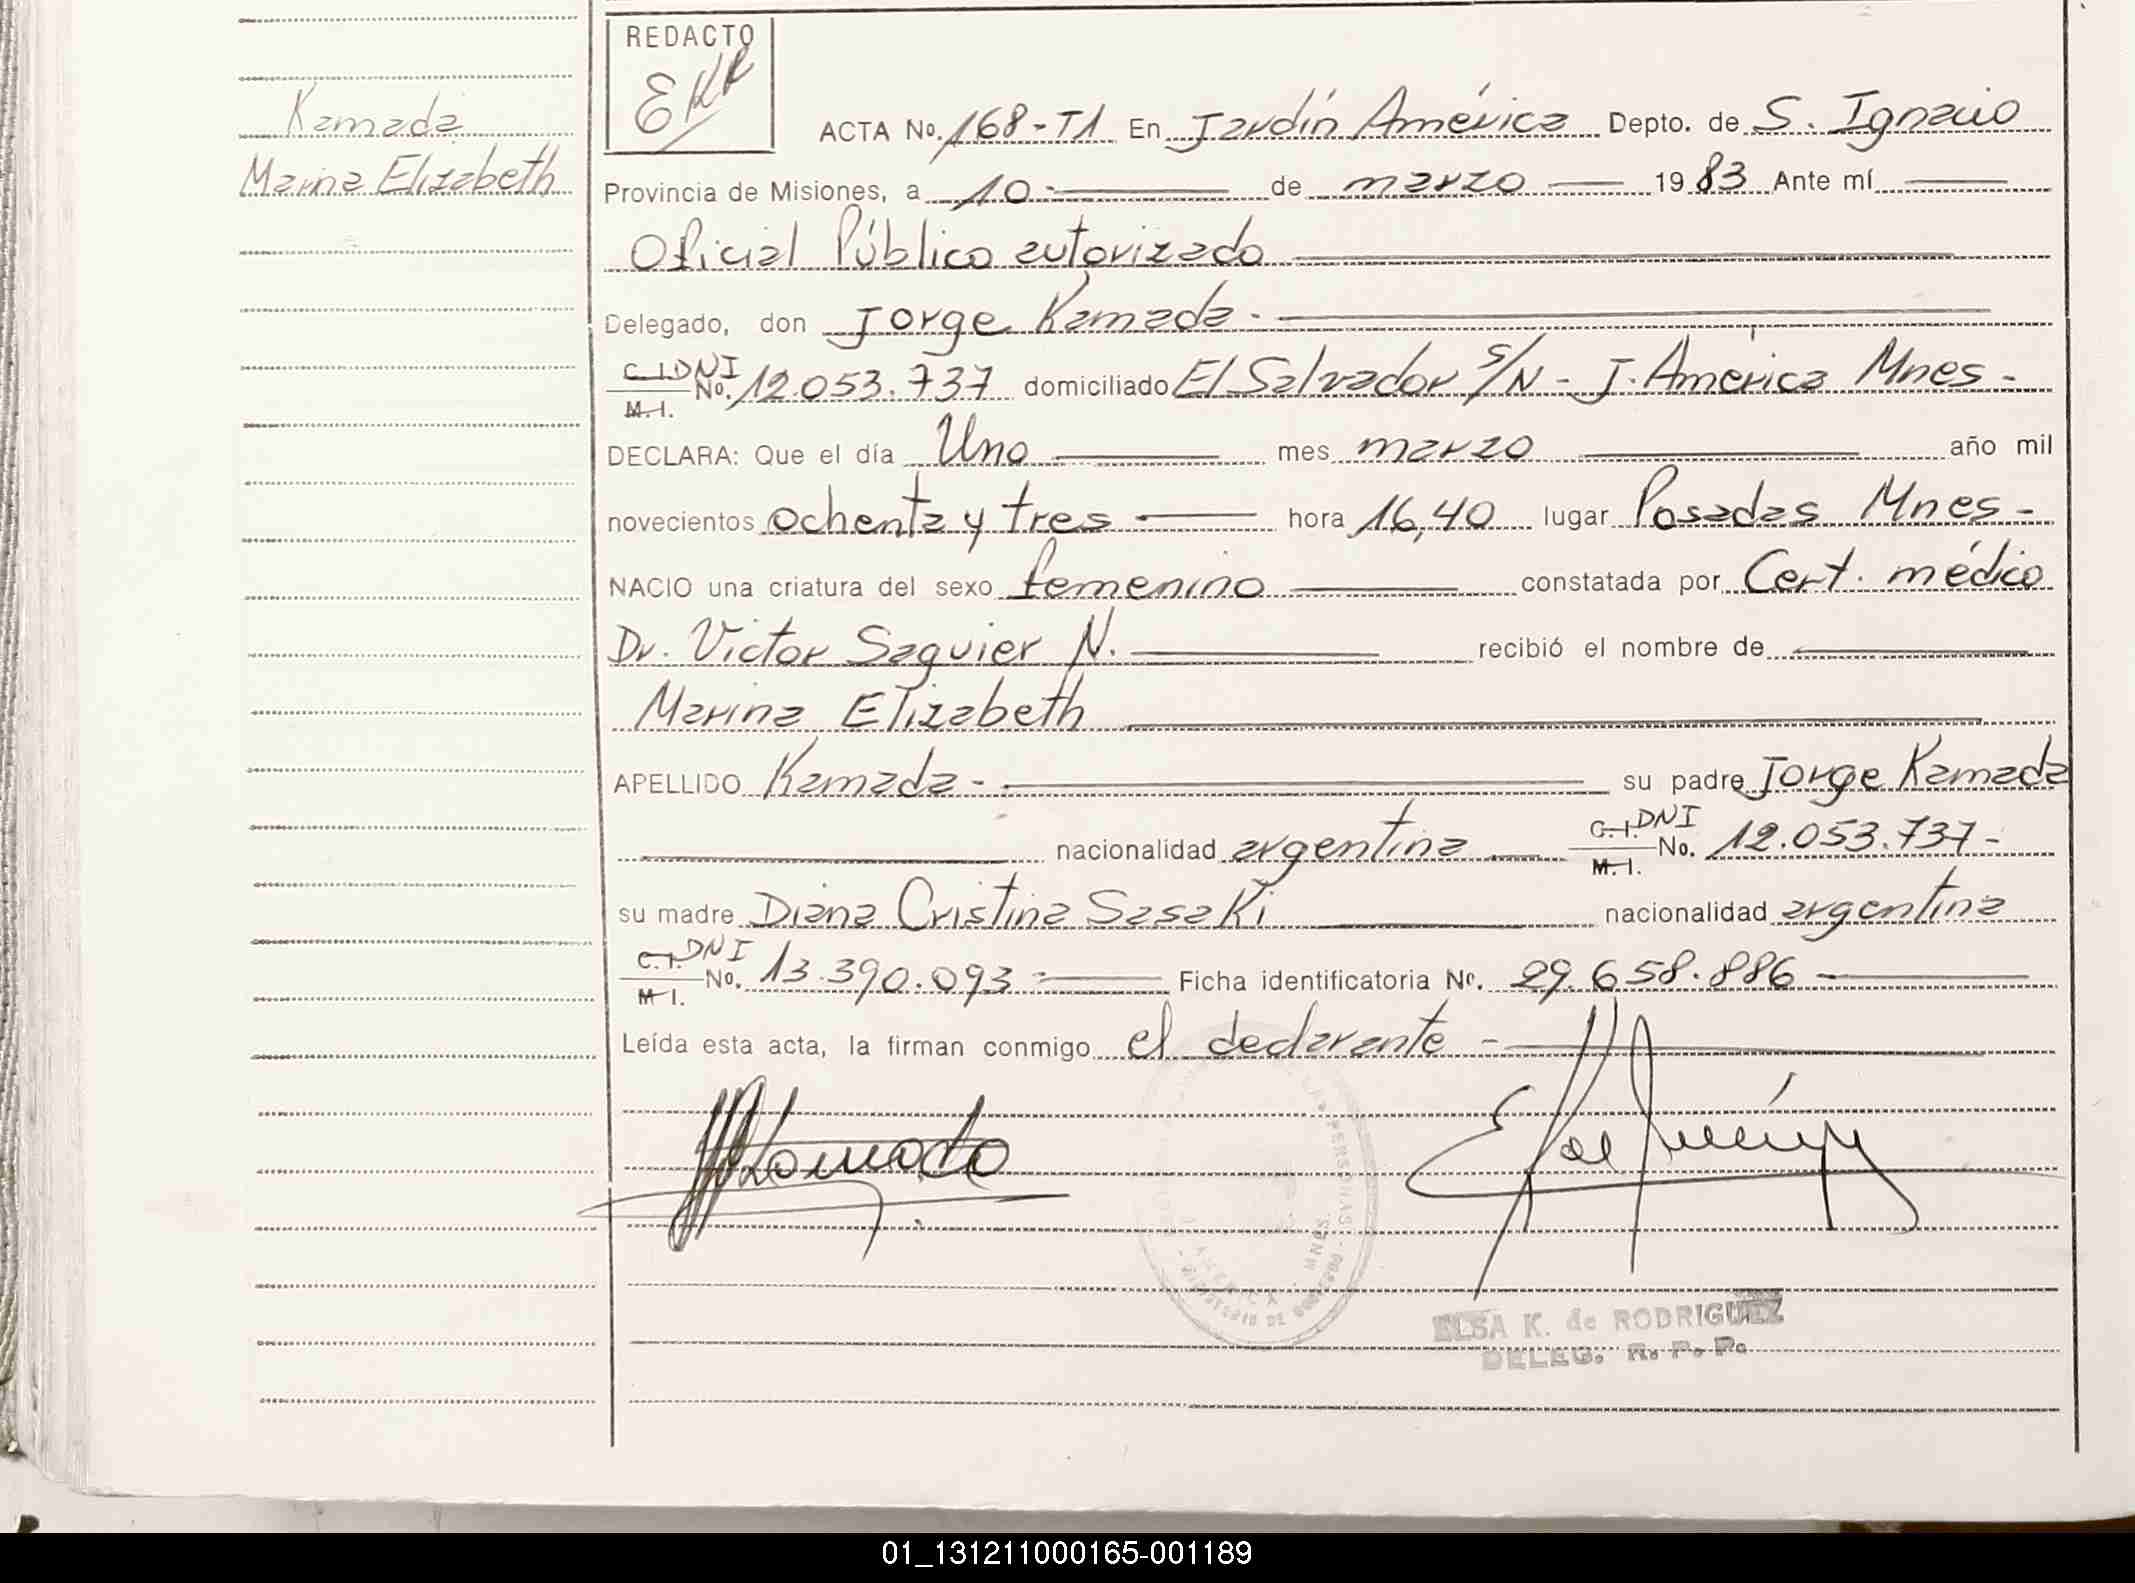 REDACTO
EKR
Kamada
Marina Elizabeth
ACTA No. 168-T1 En Jardín América Depto. de S. Ignacio
Provincia de Misiones, a 10 de marzo 1983 Ante mí
Oficial Público autorizado
Delegado, don Jorge Kamada.
C.I. DNI
M.I. No. 12.053.737 domiciliado El Salvador S/N - J. América Mnes-
DECLARA: Que el día Uno mes marzo año mil
novecientos ochenta y tres hora 16,40 lugar Posadas Mnes-
NACIO una criatura del sexo femenino constatada por Cert. médico
Dr. Victor Saguier N. recibió el nombre de
Marina Elizabeth
APELLIDO Kamada - su padre Jorge Kamada
nacionalidad argentina C.I. DNI M.I. No. 12.053.737-
su madre Diana Cristina Sasaki nacionalidad argentina
C.I. DNI
M.I. No. 13.390.093 - Ficha identificatoria No. 29.658.886 -
Leída esta acta, la firman conmigo el declarante -
Kamada
LAS PERSONAS
AMERICA MNES.
MINISTERIO DE GOBIERNO
ELSA K. de RODRIGUEZ
DELEG. R. P. P.
01_131211000165-001189